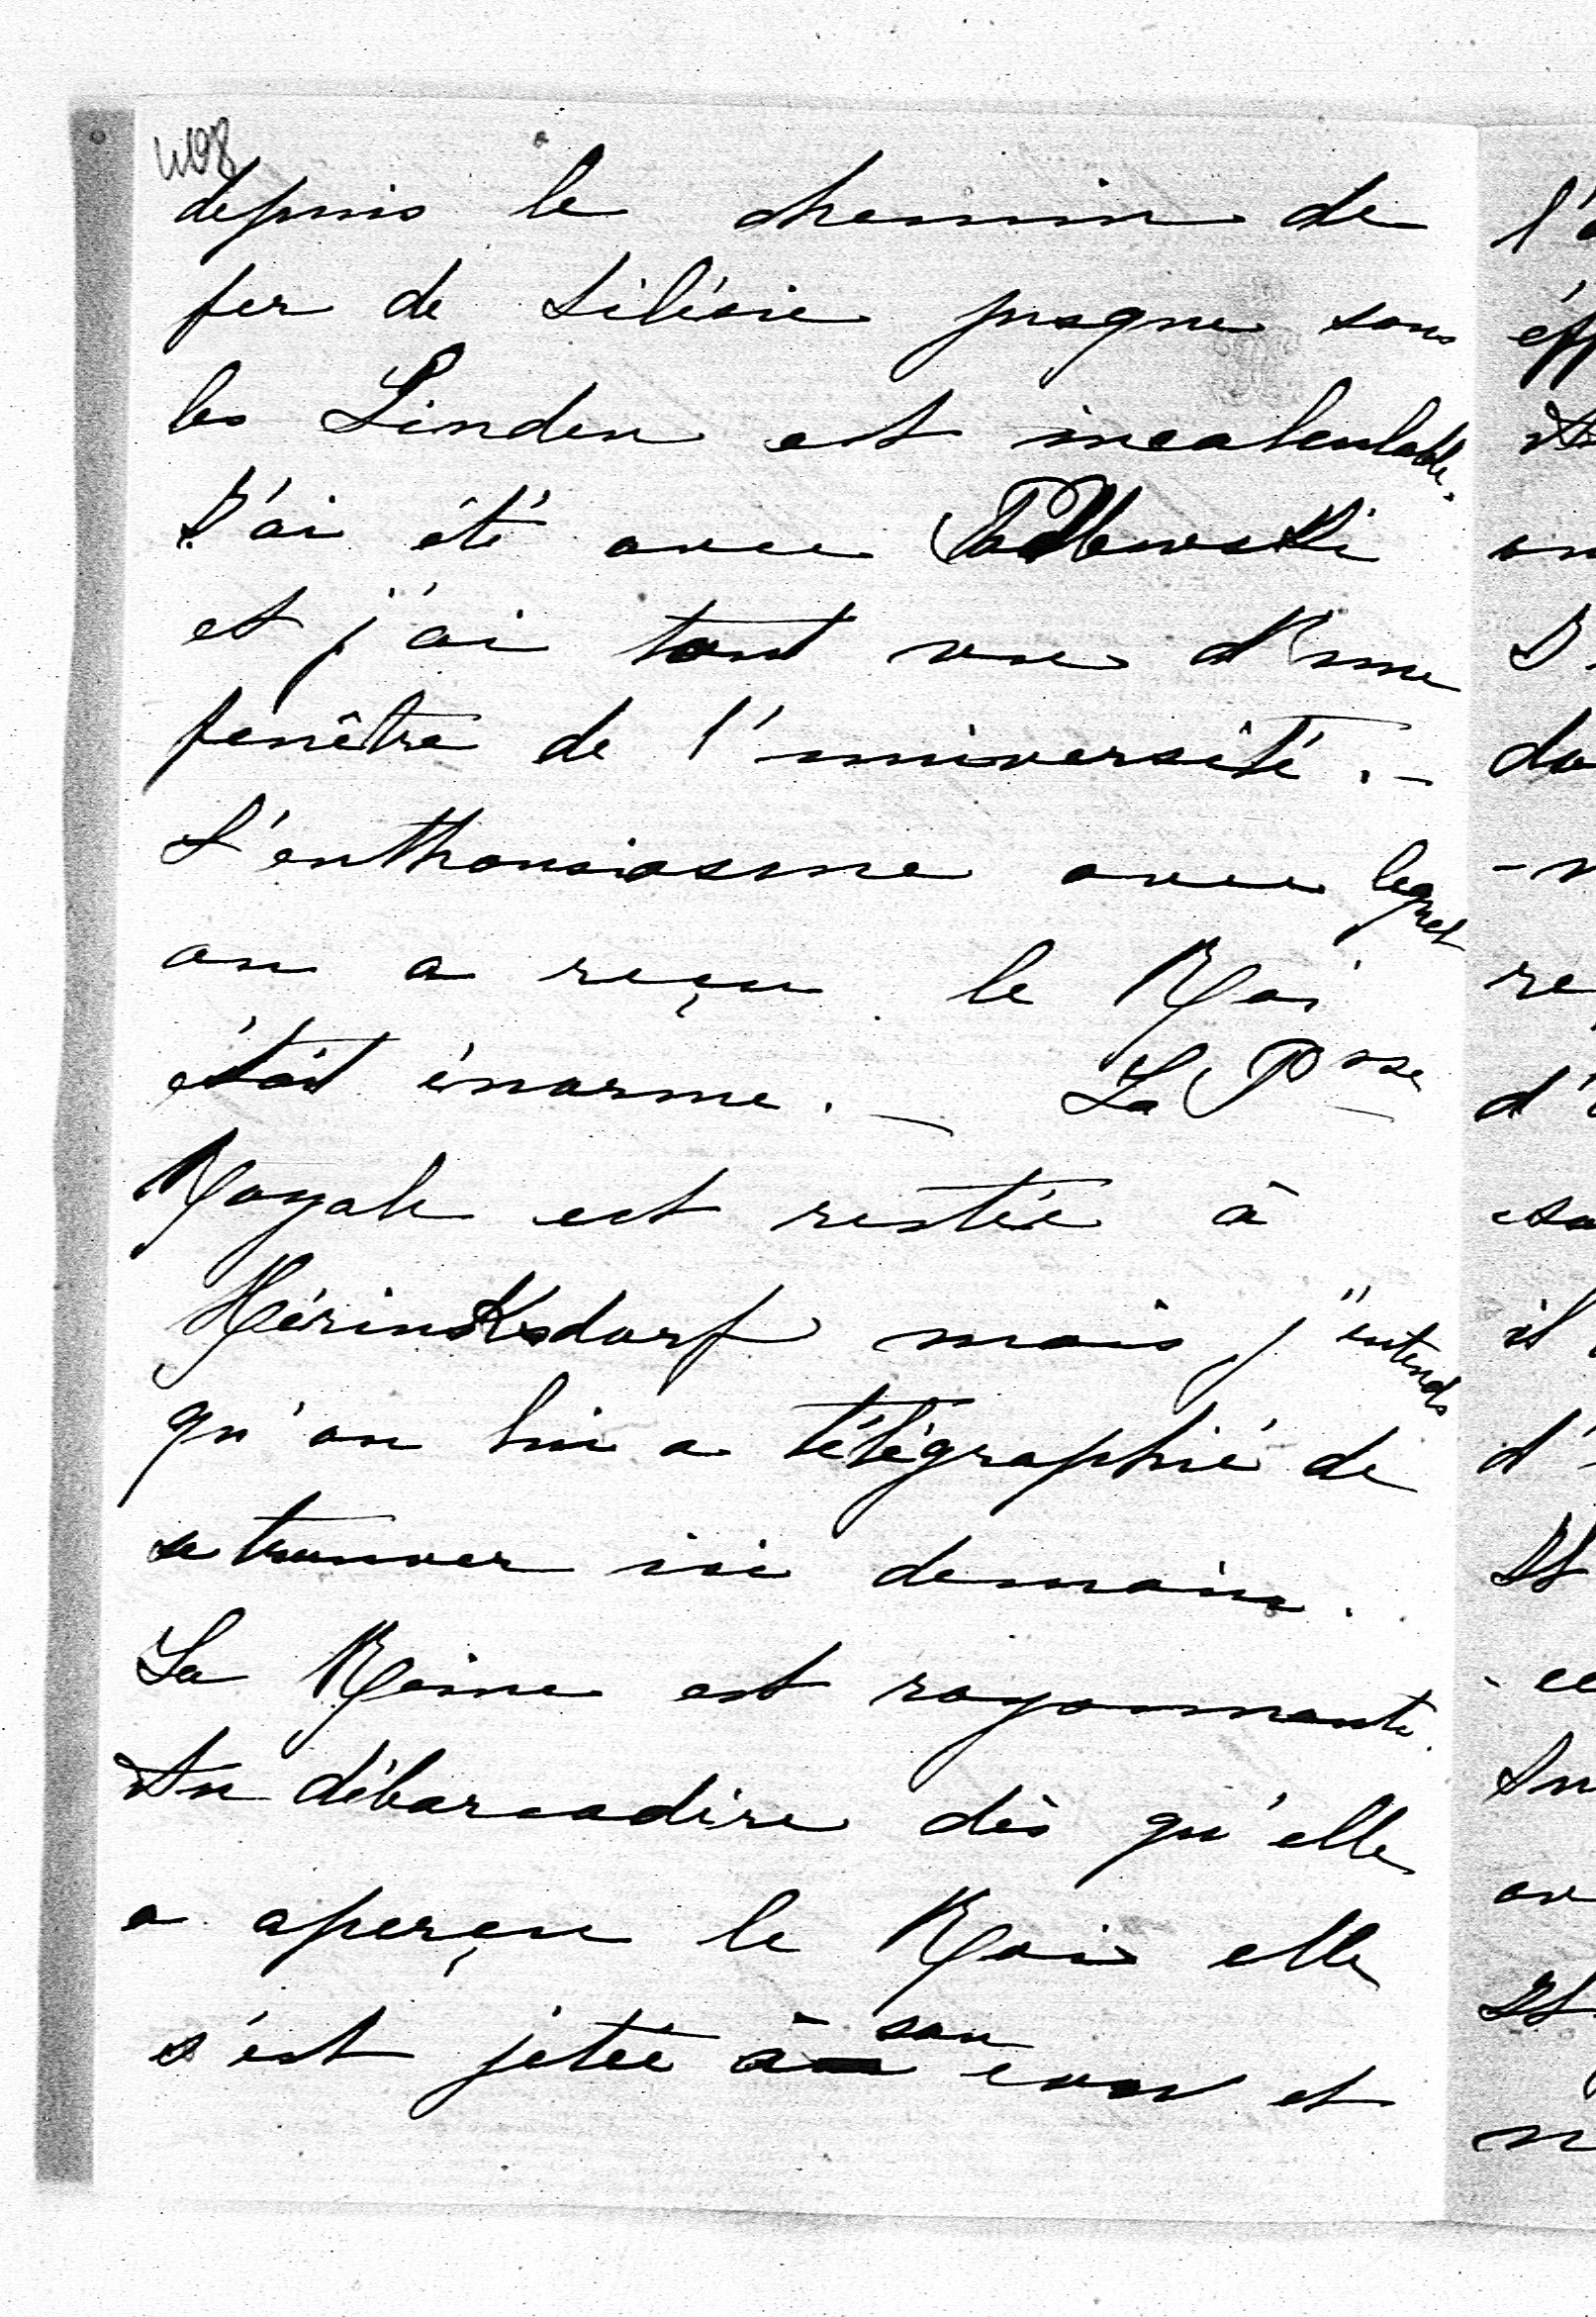 depuis le chemin de
fer de Silésie jusque sous
les Linden est incalculable.
J'ai été avec Padlewski
et j'ai tout vue d'une
fenêtre de l'université. –
L'enthousiasme avec lequel
on a reçu le Roi
était énorme. – La Psse
Royale est restée à
Hérinsksdorf mais j'entends
qu'on lui a télégraphié de
se trouver ici demain.
La Reine est rayonnante.
Au débarcadère dès qu'elle
a aperçu le Roi elle
s'est jetée à son cou et